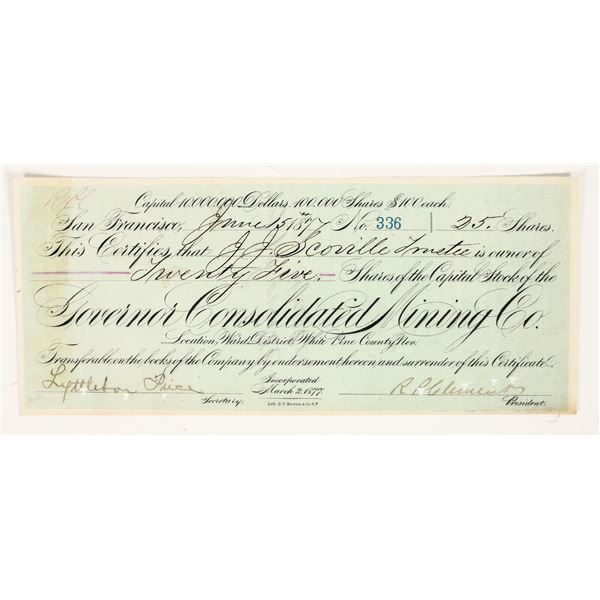 Capital 10,000,000 Dollars. 100,000 Shares $100 each.
San Francisco, June 15th 1877 No. 336 | 25 Shares.
This Certifies that J. J. Scoville Trustee is owner of
Twenty Five Shares of the Capital Stock of the
Governor Consolidated Mining Co.
Location, Ward District, White Pine County Nev.
Transferable on the books of the Company by endorsement hereon and surrender of this Certificate.
Lyttleton Price Incorporated R. P. Clement
March 2, 1877.
Secretary. President.